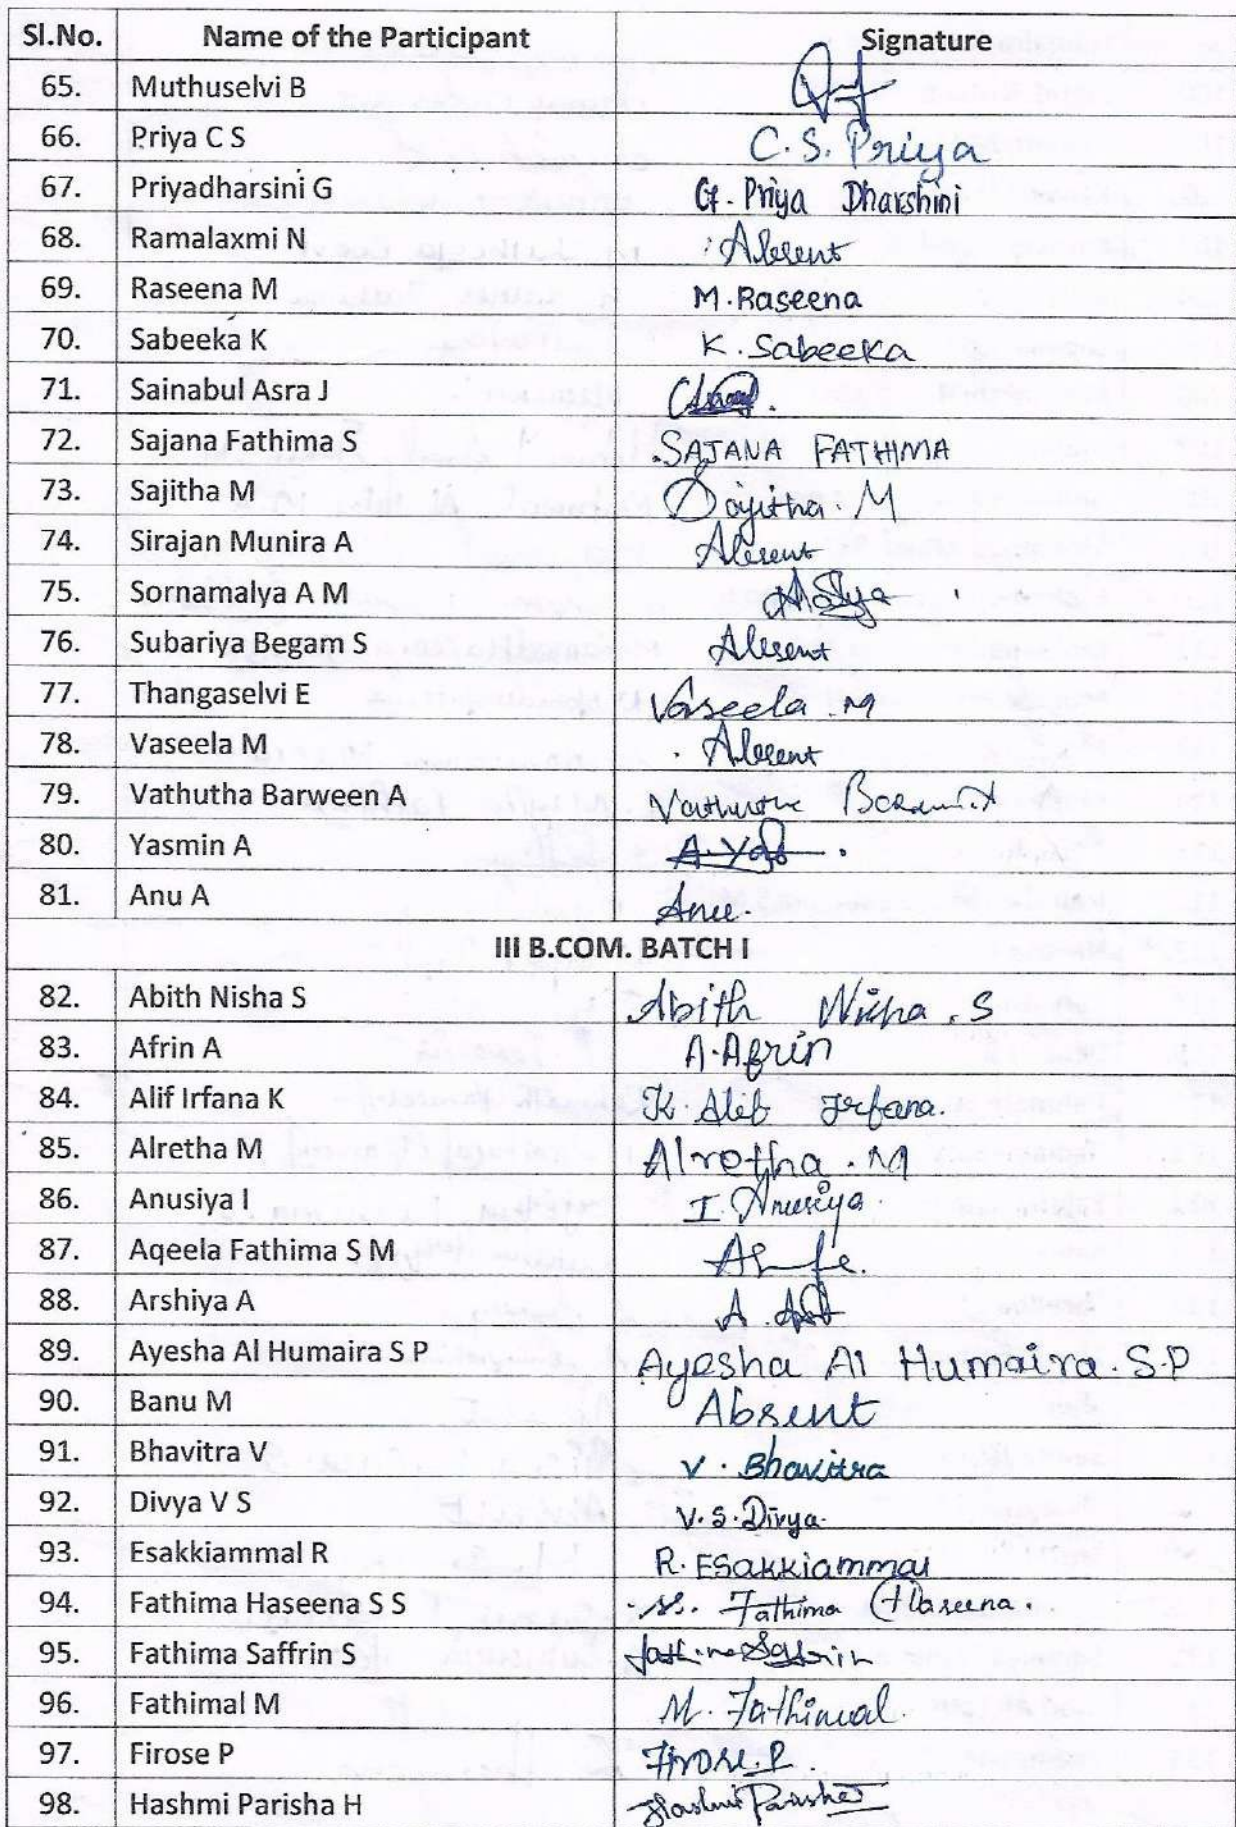 Sl.No. Name of the Participant Signature
65. Muthuselvi B
66. Priya C S C. S. Priya
67. Priyadharsini G G. Priya Dharshini
68. Ramalaxmi N Absent
69. Raseena M M. Raseena
70. Sabeeka K K. Sabeeka
71. Sainabul Asra J
72. Sajana Fathima S SAJANA FATHIMA
73. Sajitha M Sajitha. M
74. Sirajan Munira A Absent
75. Sornamalya A M
76. Subariya Begam S Absent
77. Thangaselvi E Vaseela. M
78. Vaseela M Absent
79. Vathutha Barween A
80. Yasmin A
81. Anu A Anu.
III B.COM. BATCH I
82. Abith Nisha S Abith Nisha. S
83. Afrin A A. Afrin
84. Alif Irfana K K. Alif Irfana.
85. Alretha M Alretha. M
86. Anusiya I I. Anusiya.
87. Aqeela Fathima S M
88. Arshiya A
89. Ayesha Al Humaira S P Ayesha Al Humaira. S.P
90. Banu M Absent
91. Bhavitra V V. Bhavitra
92. Divya V S V.S. Divya.
93. Esakkiammal R R. Esakkiammal
94. Fathima Haseena S S Fathima Haseena.
95. Fathima Saffrin S
96. Fathimal M M. Fathimal.
97. Firose P Firose. P.
98. Hashmi Parisha H